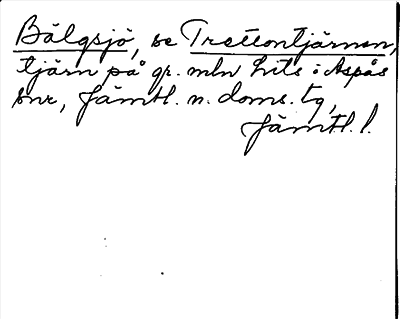 Bälgsjö, se Trettontjärnen,
tjärn på gr. mln Lits o. Aspås
snr, Jämtl. n. doms. tg,
Jämtl. l.